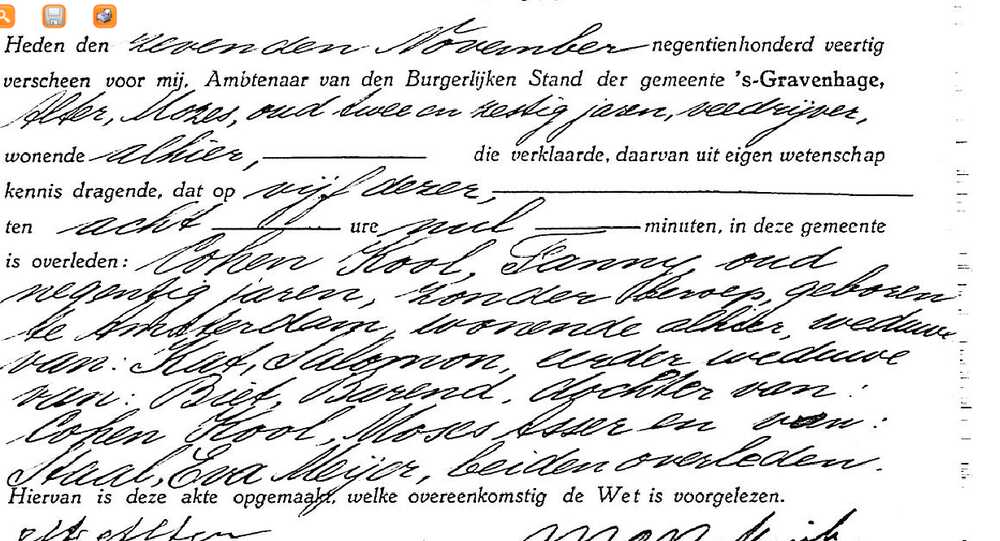 Heden den zevenden November negentienhonderd veertig
verscheen voor mij, Ambtenaar van den Burgerlijken Stand der gemeente 's-Gravenhage,
Alter, Mozes, oud twee en zestig jaren, veedrijver,
wonende alhier, die verklaarde, daarvan uit eigen wetenschap
kennis dragende, dat op vijf dezer,
ten acht ure nul minuten, in deze gemeente
is overleden: Cohen Kool, Fanny, oud
negentig jaren, zonder beroep, geboren
te Amsterdam, wonende alhier, weduwe
van: Kat, Salomon, eerder weduwe
van: Biet, Barend, dochter van:
Cohen Kool, Moses Asser en van:
Staal, Eva Meijer, beiden overleden.
Hiervan is deze akte opgemaakt, welke overeenkomstig de Wet is voorgelezen.